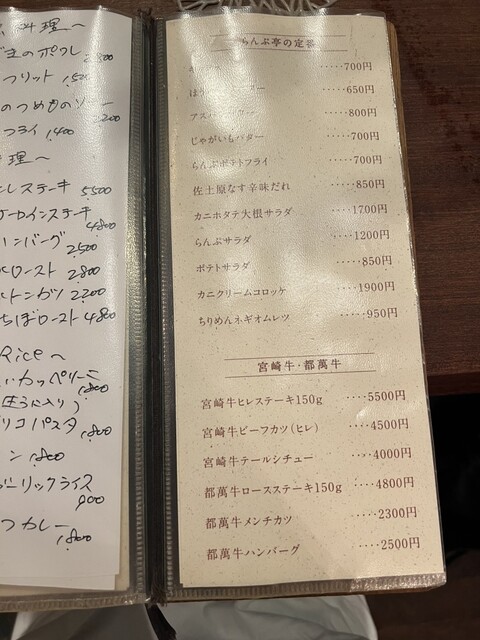 料理～
のポワレ
フリット 1,500
のつめもの
2,200
フライ 1,400
理～
ヒレステーキ 5,500
サーロインステーキ
4,800
ハンバーグ
2,500
ロースト 2,800
トンカツ 2,200
ロースト 4,800
Rice～
カッペリーニ
1,800
コパスタ
1,800
ン 1,800
ガーリックライス
900
カレー
1,800
らんぷ亭の定番
‥‥‥700円
‥‥‥650円
‥‥‥800円
じゃがいもバター ‥‥‥700円
らんぷポテトフライ ‥‥‥700円
佐土原なす辛味だれ ‥‥‥850円
カニホタテ大根サラダ ‥‥1700円
らんぷサラダ ‥‥1200円
ポテトサラダ ‥‥‥850円
カニクリームコロッケ ‥‥1900円
ちりめんネギオムレツ ‥‥‥950円
宮崎牛・都萬牛
宮崎牛ヒレステーキ150g ‥‥5500円
宮崎牛ビーフカツ(ヒレ) ‥‥4500円
宮崎牛テールシチュー ‥‥4000円
都萬牛ロースステーキ150g ‥‥4800円
都萬牛メンチカツ ‥‥2300円
都萬牛ハンバーグ ‥‥2500円